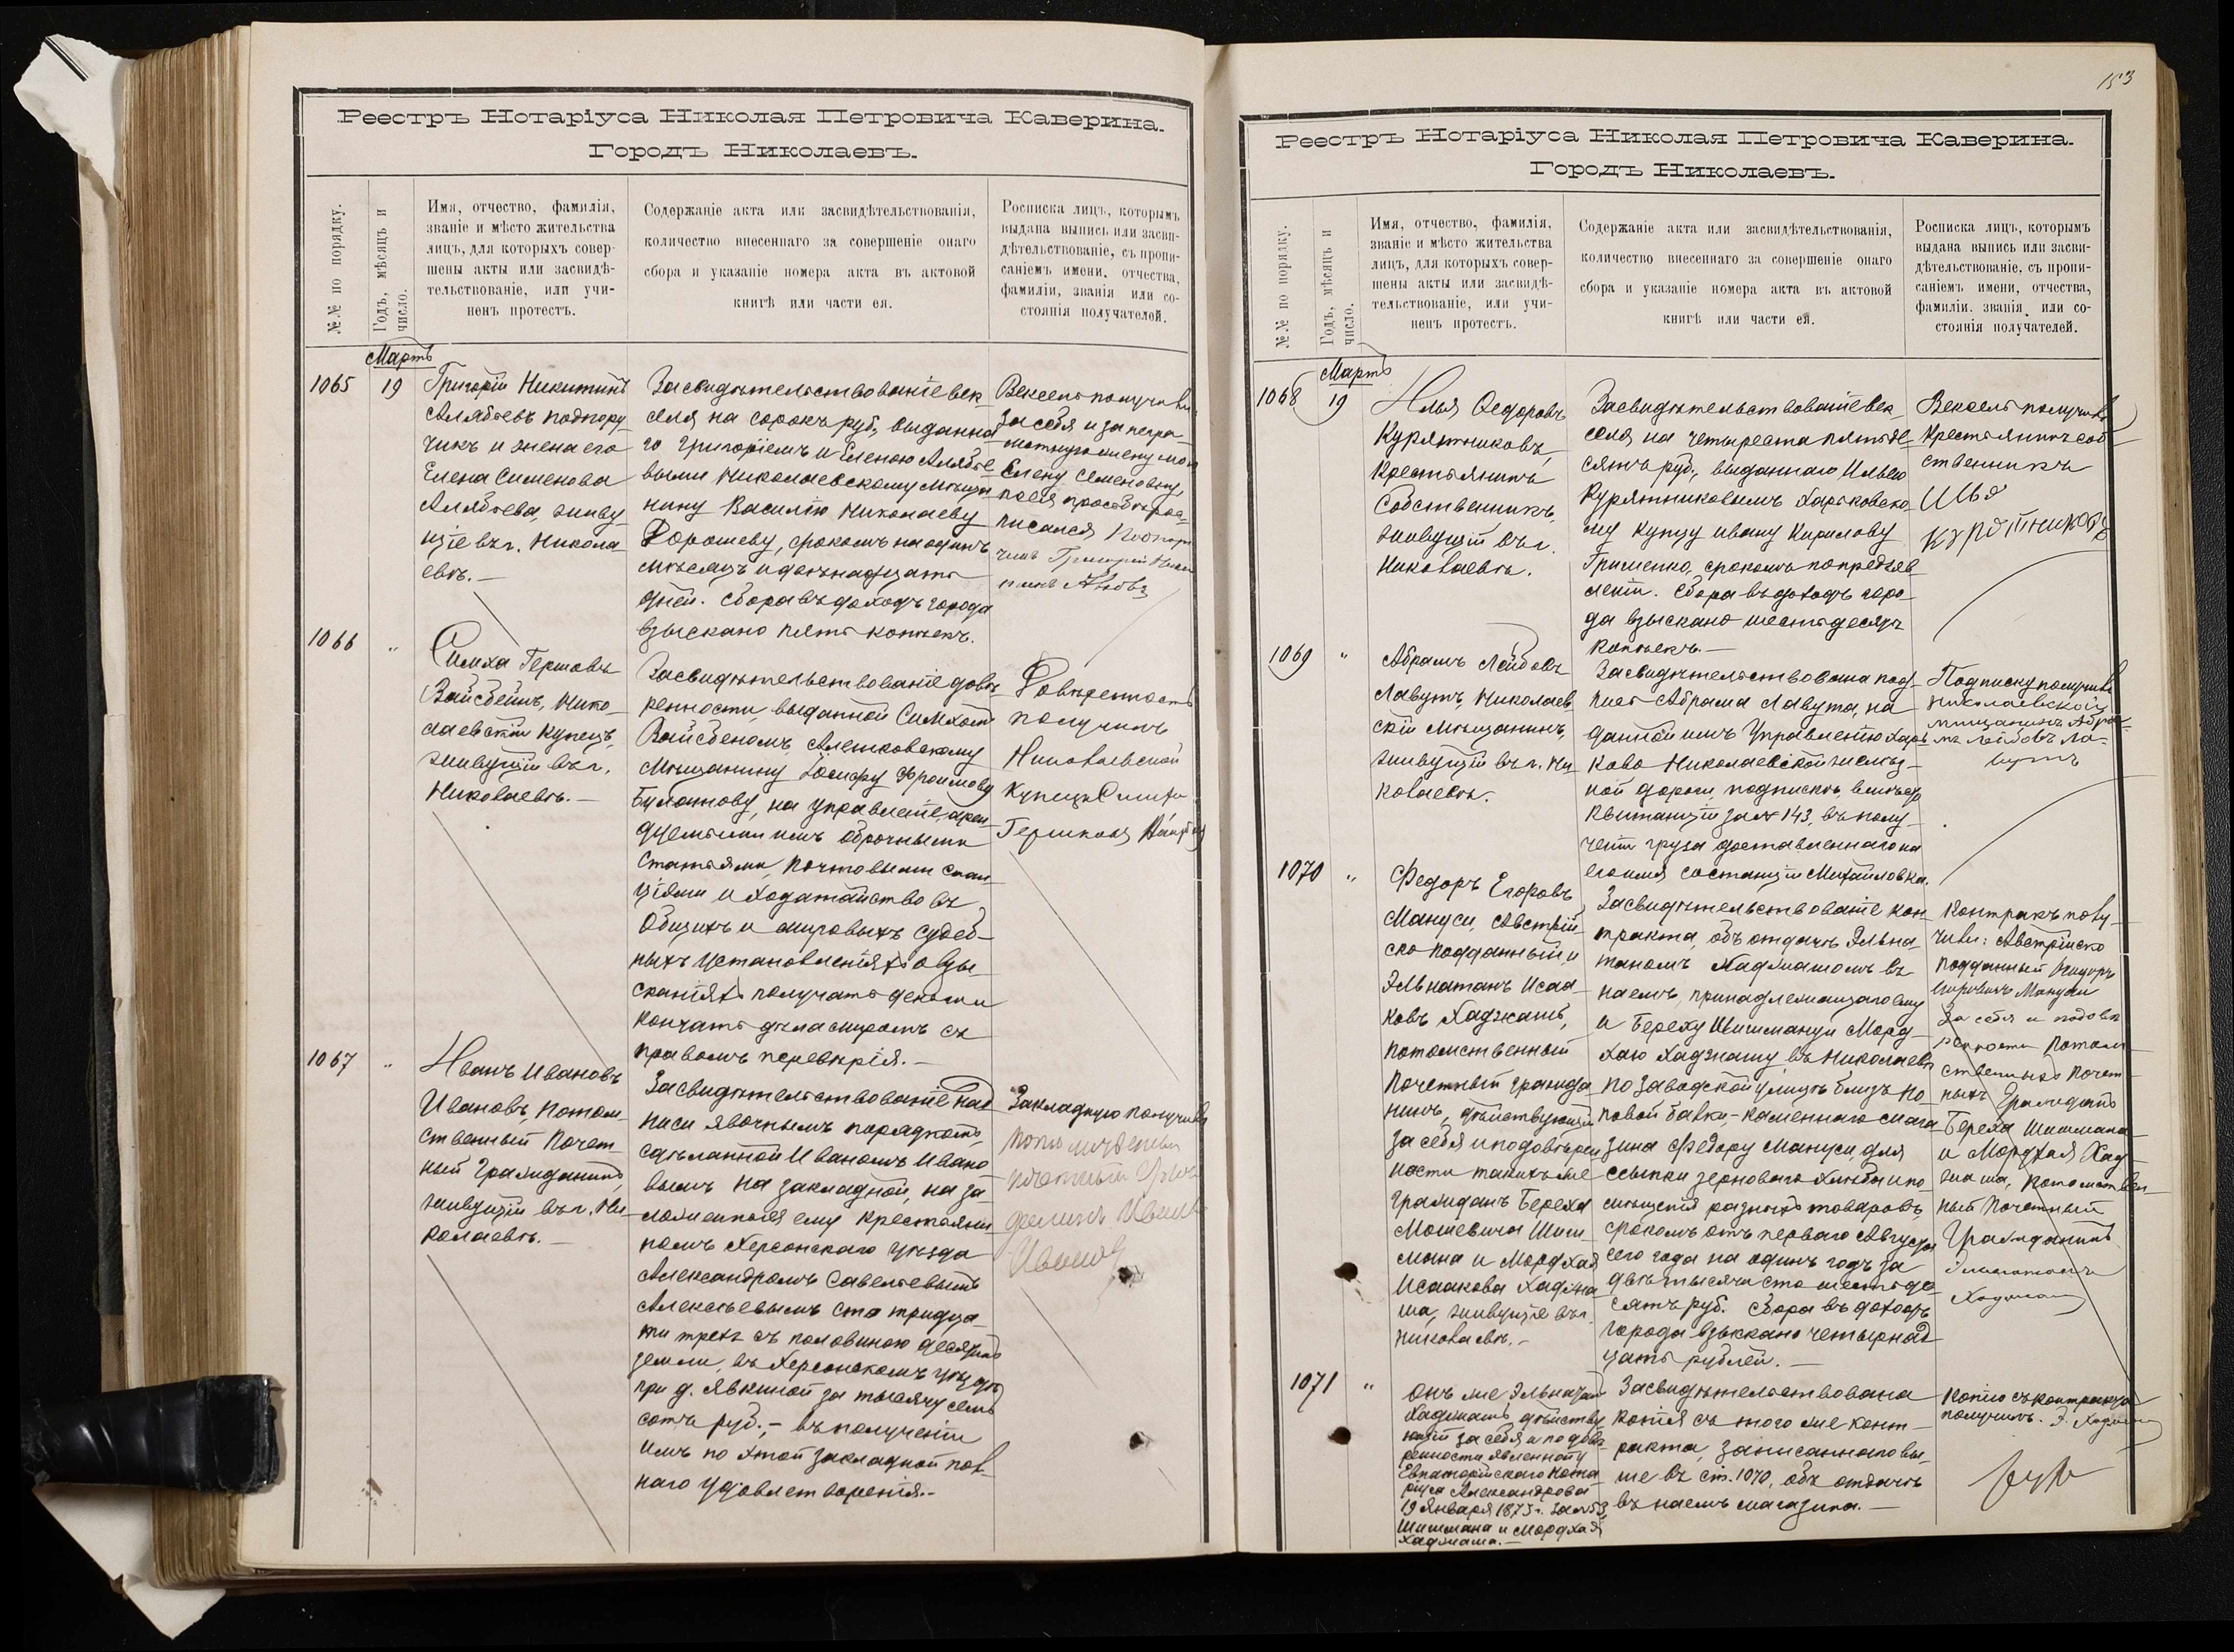 Реестръ Нотаріуса Николая Петровича Каверина.
Городъ Николаевъ.
№№ по порядку.
Годъ, мѣсяцъ и
число.
Имя, отчество, фамилія,
званіе и мѣсто жительства
лицъ, для которыхъ совер-
шены акты или засвидѣ-
тельствованіе, или учи-
ненъ протестъ.
Содержаніе акта или засвидѣтельствованія,
количество внесеннаго за совершеніе онаго
сбора и указаніе номера акта въ актовой
книгѣ или части ея.
Росписка лицъ, которымъ
выдана выпись или засви-
дѣтельствованіе, съ пропи-
саніемъ имени, отчества,
фамиліи, званія или со-
стоянія получателей.
Мартъ
1065
19
Григорій Никитинъ
Алябьевъ подпору
чикъ и жена его
Елена Сименова
Алябьева, живу
щіе въ г. Никола
евѣ.—
Засвидѣтельствованіе век
селя на сорокъ руб., выданна
го Григоріемъ и Еленою Алябье
выми Николаевскому мѣща
нину Василію Николаеву
Дорошеву, срокомъ на одинъ
мѣсяцъ и двѣнадцать
дней. Сбора въ доходъ города
взыскано пять копѣекъ.
Вексель получилъ
За себя и за негра-
мотную жену мою
Елену Семеновну,
по ея просьбѣ рос-
писался
1066
"
Симха Гершовъ
Вайсбейнъ, Нико-
лаевскій купецъ,
живущій въ г.
Николаевѣ.—
Засвидѣтельствованіе довѣ
ренности, выданной Симхою
Вайсбеномъ, Алешковскому
мѣщанину Іосифу Фроимову
на управленіе, арен
дуемыми имъ оброчными
статьями, почтовыми стан
ціями и ходатайство въ
Общихъ и мировыхъ судеб-
ныхъ установленіяхъ о взы
сканіяхъ получать деньги
кончать дѣла миромъ съ
правомъ перевѣрія.—
Довѣренность
получилъ
Николаевской
Купецъ Симха
1067
"
Иванъ Ивановъ
Ивановъ, потом
ственный Почет
ный Гражданинъ,
живущій въ г. Ни
колаевѣ.—
Засвидѣтельствованіе над
писи явочнымъ порядкомъ,
сдѣланной Иваномъ Ивано
вымъ на закладной, на за
ложенныя ему крестьяни
номъ Херсонскаго уѣзда
Александромъ Савельевымъ
Алексѣевымъ сто тридца
ти трехъ съ половиною десятинъ
земли, въ Херсонскомъ уѣздѣ
при д. Явкиной за тысячу семь
сотъ руб.,— въ полученіи
имъ по этой закладной пол
наго удовлетворенія.—
Закладную получилъ
153
Реестръ Нотаріуса Николая Петровича Каверина.
Городъ Николаевъ.
№№ по порядку.
Годъ, мѣсяцъ и
число.
Имя, отчество, фамилія,
званіе и мѣсто жительства
лицъ, для которыхъ совер-
шены акты или засвидѣ-
тельствованіе, или учи-
ненъ протестъ.
Содержаніе акта или засвидѣтельствованія,
количество внесеннаго за совершеніе онаго
сбора и указаніе номера акта въ актовой
книгѣ или части ея.
Росписка лицъ, которымъ
выдана выпись или засви-
дѣтельствованіе, съ пропи-
саніемъ имени, отчества,
фамиліи, званія или со-
стоянія получателей.
Мартъ
1068
19
Илья Федоровъ
Курятниковъ,
Крестьянинъ
Собственникъ,
живущій въ г.
Николаевѣ.
Засвидѣтельствованіе век
селя на четыреста пятьде
сятъ руб., выданнаго Ильею
Курятниковымъ Харьковско
му купцу Ивану Кирилову
Гриненко, срокомъ по предъяв
леніи. Сбора въ доходъ горо-
да взыскано шестьдесятъ
копѣекъ.—
Вексель получилъ
Крестьянинъ соб
ственникъ
1069
"
Абрамъ Лейбовъ
Лавутъ, Николаев
скій мѣщанинъ,
живущій въ г. Ни
колаевѣ.
Засвидѣтельствована под-
пись Абрама Лавута, на
данной имъ Управленію Харь
ково Николаевской желѣз-
ной дороги, подпискѣ, вмѣсто
квитанціи за № 143, въ полу-
ченіи груза доставленнаго на
его имя со станціи Михайловка.
Подписку получилъ
Николаевской
мищанинъ Абра-
мъ Лейбовъ Ла-
вутъ
1070
"
Федоръ Егоровъ
Мануси, Австрій
ско подданный, и
Эльнатанъ Исаа
ковъ Хаджашъ,
потомственный
Почетный гражда
нинъ, дѣйствующій
за себя и по довѣрен
ности такихъ же
гражданъ Береха
Мошевича Шиш
мана и Мордхая
Исаакова Хаджа
ша, живущіе въ г.
Николаевѣ.—
Засвидѣтельствованіе кон
тракта, объ отдачѣ Эльна
таномъ Хаджашомъ въ
наемъ, принадлежащаго ему
и Береху Шишману и Морд-
хаю Хаджашу въ Николаевѣ
по Заводской улицѣ близъ по
повой балки,— каменнаго мага
зина Федору Мануси, для
ссыпки зерноваго хлѣба и по-
мѣщенія разныхъ товаровъ,
срокомъ отъ перваго Августа
сего года на одинъ годъ за
двѣ тысячи сто шестьде
сятъ руб. Сбора въ доходъ
города взыскано четырнад
цать рублей.—
Контрактъ полу-
чили: Австрійско
подданный
За себя и по довѣ
ренности Потом
ственныхъ Почет
ныхъ Гражданъ
Береха Шишмана
и Мордхая Хад
жаша, Потомствен
ный Почетный
Гражданинъ
1071
"
Онъ же Эльнатанъ
Хаджашъ, дѣйству
ющій за себя и по довѣ
ренности явленной у
Евпаторійскаго нота
ріуса Александрова
19 Января 1873 г. за № 53,
Шишмана и Мордхая
Хаджаша.—
Засвидѣтельствована
копія съ того же конт-
ракта, записаннаго вы
ше въ ст. 1070, объ отдачѣ
въ наемъ магазина.—
Копію съ контракта
получилъ.